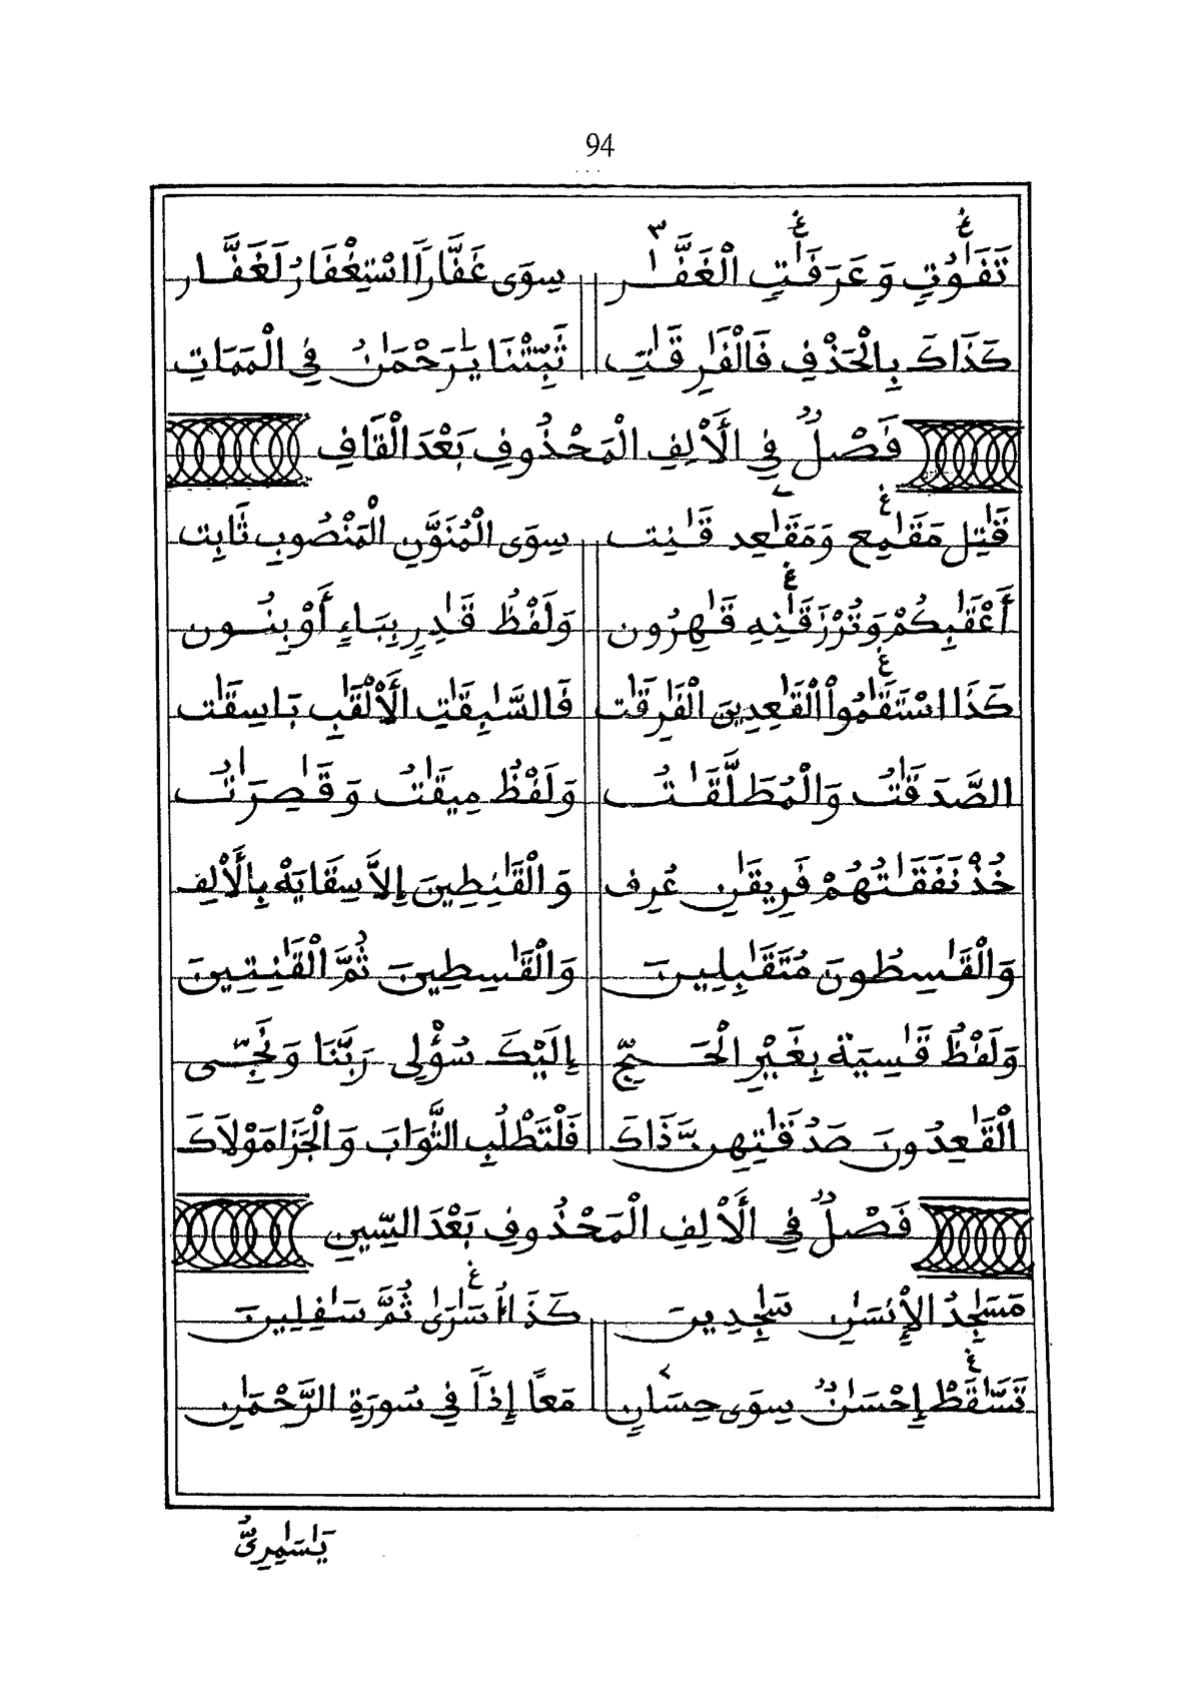 94
تَفَٰوُتٍ وَعَرَفَٰتٍ الْغَفَّٰرُ سِوَى غَفَّاراً اسْتِغْفَارُ لَغَفَّار
كَذَاكَ بِالْحَذْفِ فَالْفَٰرِقَٰتِ ثَبِّتْنَا يَٰرَحْمَٰنُ فِي الْمَمَاتِ
فَصْلٌ فِي الْأَلِفِ الْمَحْذُوفِ بَعْدَ الْقَافِ
قَٰتِل مَقَٰمِع وَمَقَٰعِد قَٰنِت سِوَى الْمُنَوَّنِ الْمَنْصُوبِ ثَابِت
أَعْقَٰبِكُمْ وَتُرْزَقَٰنِهِ قَٰهِرُون وَلَفْظُ قَٰدِرٍ بِبَاءٍ أَوْ بِنُون
كَذَا اسْتَقَٰمُواْ الْقَٰعِدِينَ الْفَٰرِقَٰت فَالسَّٰبِقَٰتِ الْأَلْقَٰبِ بَاسِقَٰت
الصَّدَقَٰتُ وَالْمُطَلَّقَٰتُ وَلَفْظُ مِيقَٰتُ وَقَٰصِرَٰتُ
خُذْ نَفَقَٰتُهُمْ فَرِيقَٰنِ عُرِف وَالْقَٰنِطِينَ إِلاَّ سِقَايَةْ بِالْأَلِف
وَالْقَٰسِطُونَ مُتَقَٰبِلِينَ وَالْقَٰسِطِينَ ثُمَّ الْقَٰنِتِينَ
وَلَفْظُ قَٰسِيَة بِغَيْرِ الْحَجِّ إِلَيْكَ سُؤْلِى رَبَّنَا وَنَجِّى
الْقَٰعِدُونَ صَدُقَٰتِهِنَّ ذَاكَ فَلْتَطْلُبِ الثَّوَابَ وَالْجَزَا مَوْلاَكَ
فَصْلٌ فِي الْأَلِفِ الْمَحْذُوفِ بَعْدَ السِّينِ
مَسَٰجِدُ الْإِنسَٰنِ سَٰجِدِينَ كَذَا أُسَٰرَىٰ ثُمَّ سَٰفِلِينَ
تَسَّٰقَطْ إِحْسَٰنٌ سِوَى حِسَانٍ مَعاً إِذاً فِي سُورَةِ الرَّحْمَٰنِ
يَٰسَٰمِرِىُّ